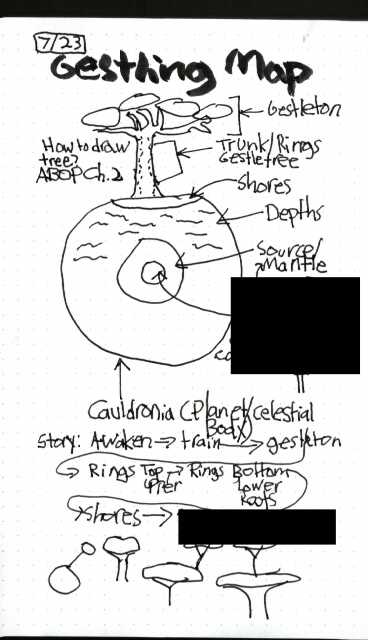 7/23
Gesthing Map
Gestleton
How to draw
tree?
ABOP Ch.2
Trunk/Rings
Gestletree
Shores
Depths
Source/
Mantle
Cauldronia (Planet/celestial
Body)
Story: Awaken → train → gestleton
→ Rings Top → Rings Bottom
Lower
Roots
→ Shores →